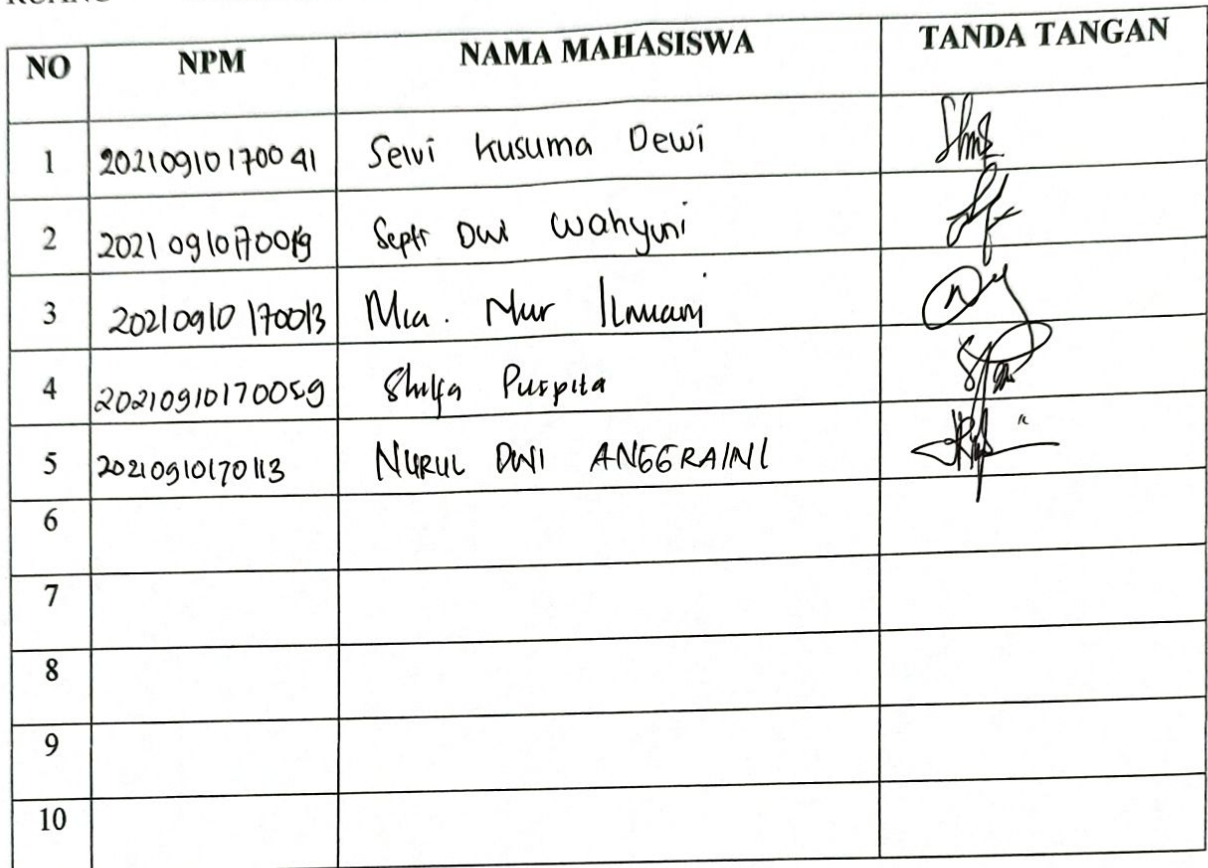 NO NPM NAMA MAHASISWA TANDA TANGAN
1 20210910170041 Selvi Kusuma Dewi
2 Septi Dwi Wahyuni
3 20210910170013 Mia. Nur
4 20210910170059 Shilfa Puspita
5 20210910170113 NURUL DWI ANGGRAINI
6
7
8
9
10